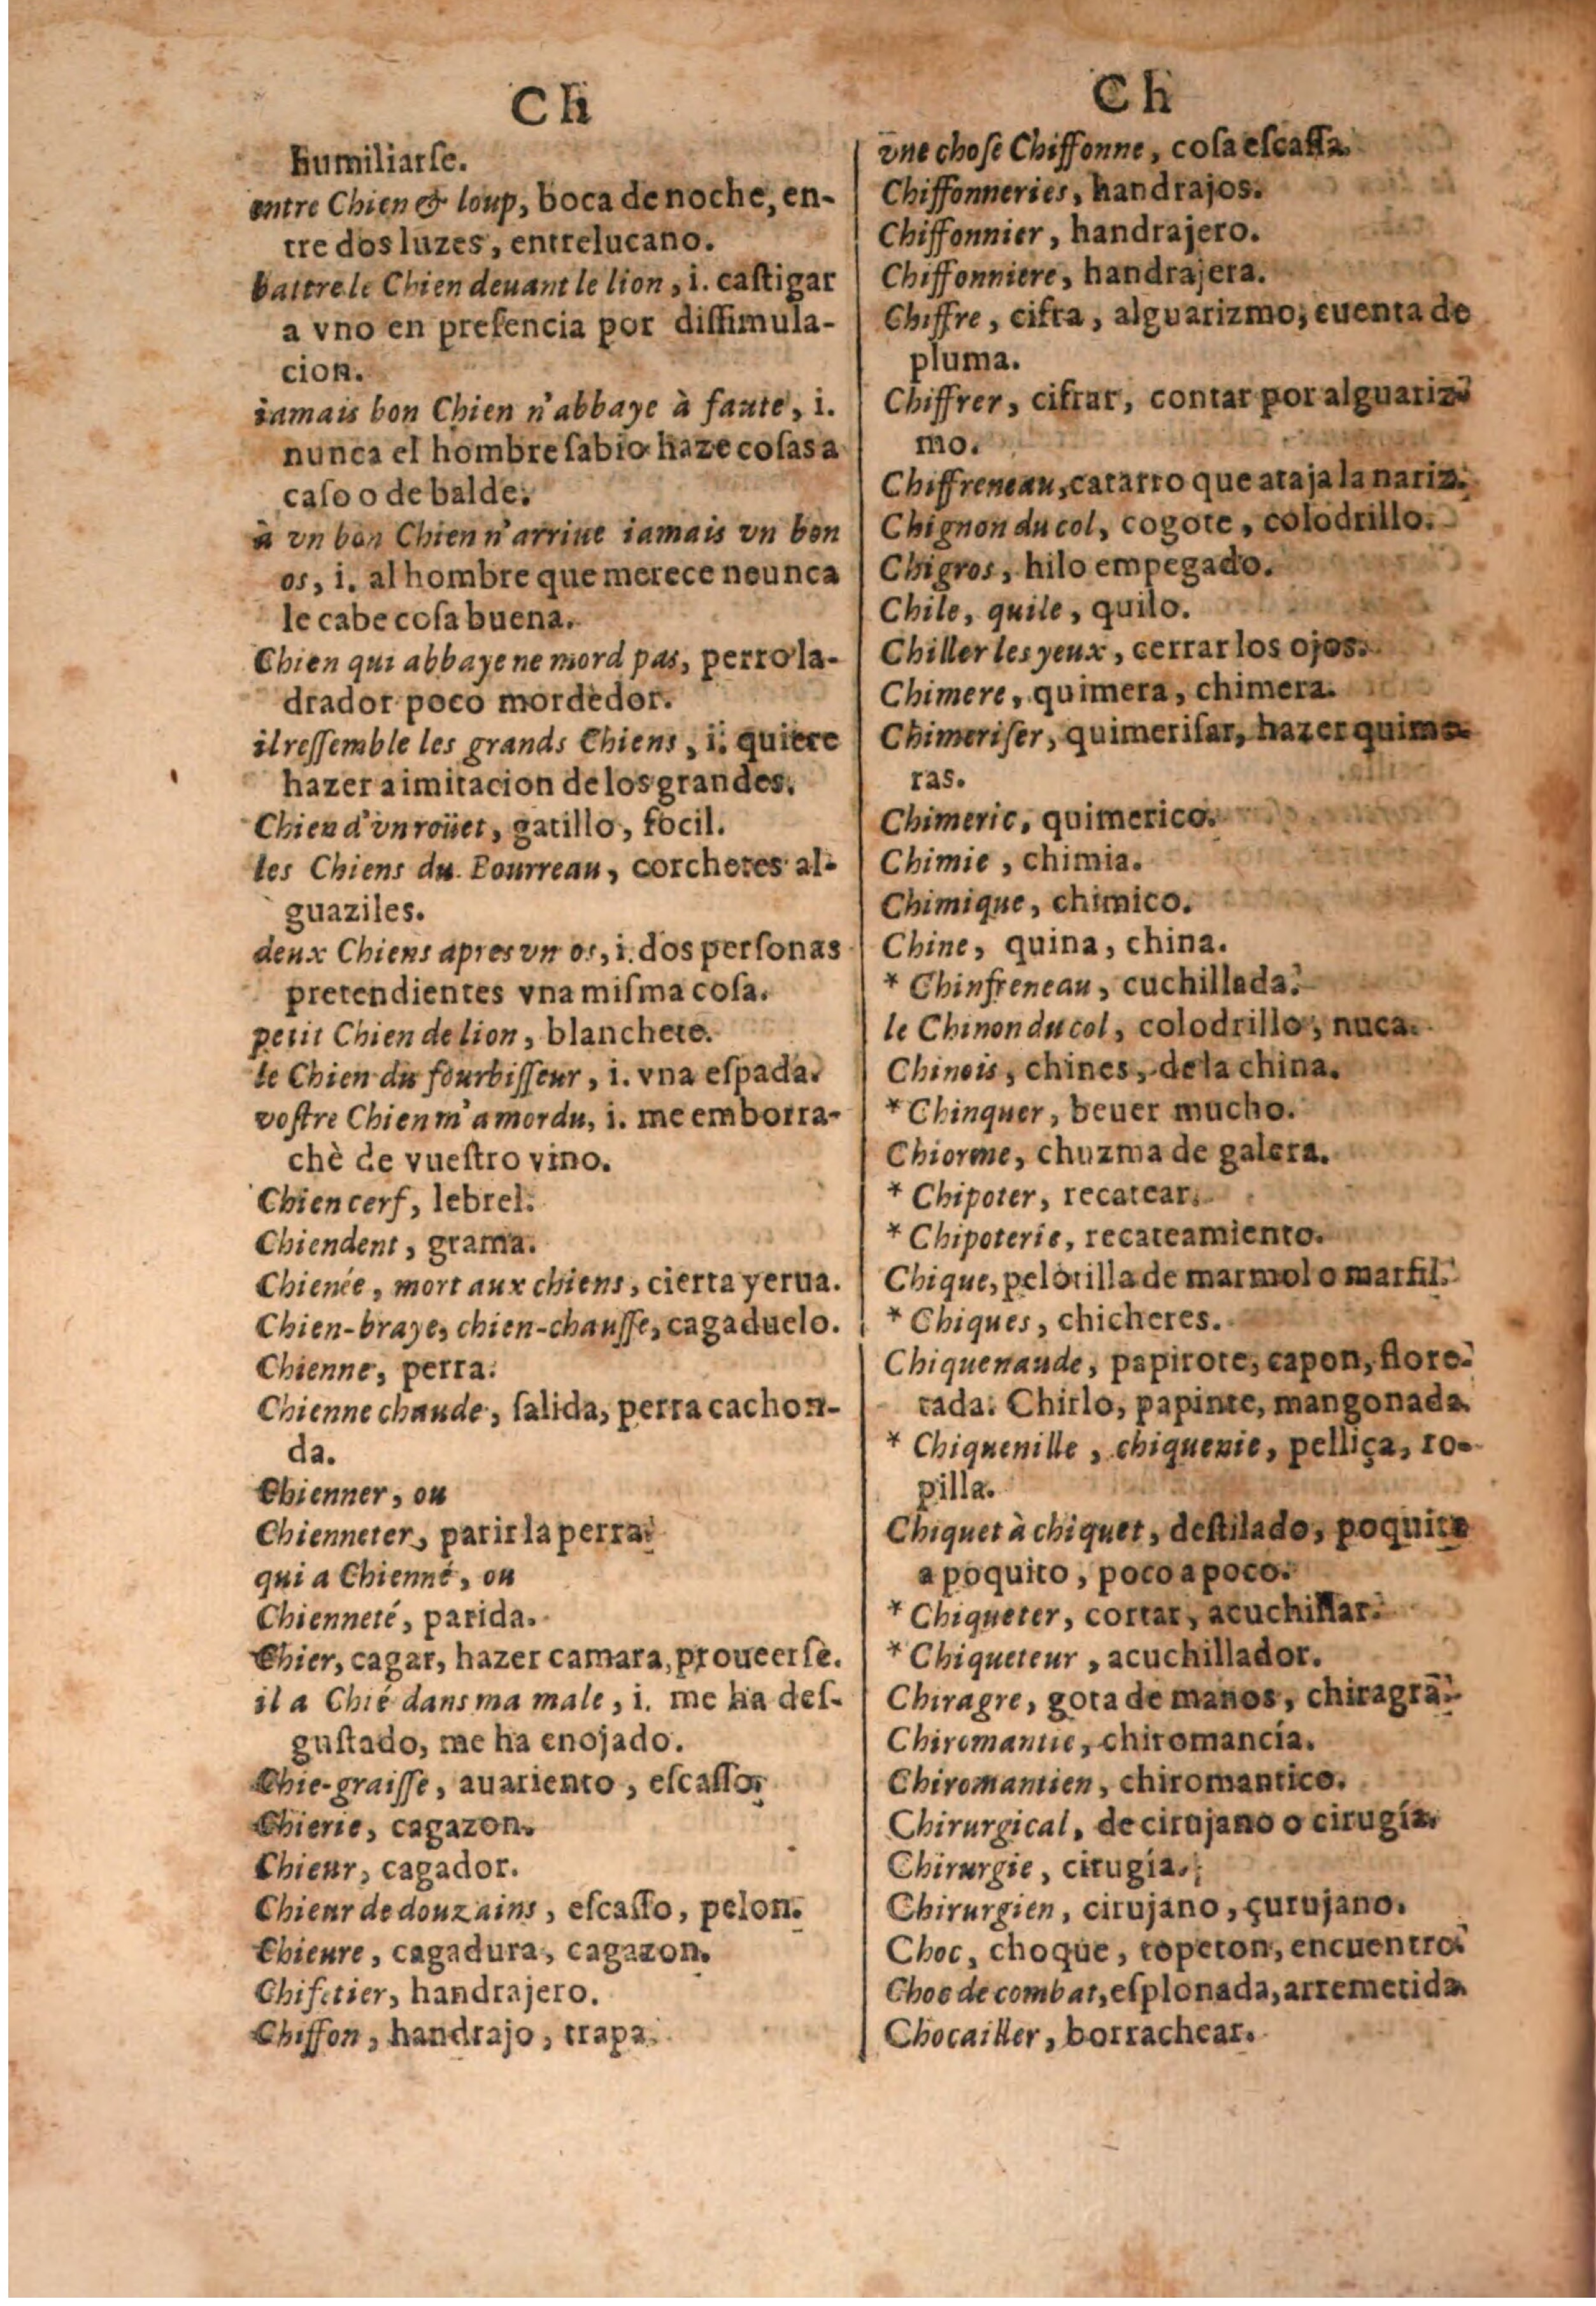 Ch
humiliarſe.
entre Chien & loup, boca de noche, en-
tre dos luzes, entrelucano.
battre le Chien deuant le lion, i. caſtigar
a vno en preſencia por diſſimula-
cion.
iamais bon Chien n'abbaye à faute, i.
nunca el hombre ſabio haze coſas a
caſo o de balde.
à vn bon Chien n'arriue iamais vn bon
os, i. al hombre que merece neunca
le cabe coſa buena.
Chien qui abbaye ne mord pas, perro la-
drador poco mordedor.
il reſſemble les grands Chiens, i. quiere
hazer a imitacion de los grandes.
Chien d'vn roüet, gatillo, focil.
les Chiens du Bourreau, corchetes al-
guaziles.
deux Chiens apres vn os, i. dos perſonas
pretendientes vna miſma coſa.
petit Chien de lion, blanchete.
le Chien du fourbiſſeur, i. vna eſpada.
voſtre Chien m'a mordu, i. me emborra-
chè de vueſtro vino.
Chien cerf, lebrel.
Chiendent, grama.
Chienée, mort aux chiens, cierta yerua.
Chien-braye, chien-chauſſe, cagaduelo.
Chienne, perra.
Chienne chaude, ſalida, perra cachon-
da.
Chienner, ou
Chienneter, parir la perra.
qui a Chienné, ou
Chienneté, parida.
Chier, cagar, hazer camara, proueerſe.
il a Chié dans ma male, i. me ha deſ-
guſtado, me ha enojado.
Chie-graiſſe, auariento, eſcaſſo.
Chierie, cagazon.
Chieur, cagador.
Chieur de douzains, eſcaſſo, pelon.
Chieure, cagadura, cagazon.
Chifetier, handrajero.
Chiffon, handrajo, trapa.
Ch
vne choſe Chiffonne, coſa eſcaſſa.
Chiffonneries, handrajos.
Chiffonnier, handrajero.
Chiffonniere, handrajera.
Chiffre, cifra, alguarizmo, cuenta de
pluma.
Chiffrer, cifrar, contar por alguariz-
mo.
Chiffreneau, catarro que ataja la nariz.
Chignon du col, cogote, colodrillo.
Chigros, hilo empegado.
Chile, quile, quilo.
Chiller les yeux, cerrar los ojos.
Chimere, quimera, chimera.
Chimeriſer, quimeriſar, hazer quime-
ras.
Chimeric, quimerico.
Chimie, chimia.
Chimique, chimico.
Chine, quina, china.
* Chinfreneau, cuchillada.
le Chinon du col, colodrillo, nuca.
Chinois, chines, de la china.
* Chinquer, beuer mucho.
Chiorme, chuzma de galera.
* Chipoter, recatear.
* Chipoterie, recateamiento.
Chique, pelotilla de marmol o marfil.
* Chiques, chicheres.
Chiquenaude, papirote, capon, flore-
tada. Chirlo, papinte, mangonada.
* Chiquenille, chiquenie, pelliça, ro-
pilla.
Chiquet à chiquet, deſtilado, poquito
a poquito, poco a poco.
* Chiqueter, cortar, acuchillar.
* Chiqueteur, acuchillador.
Chiragre, gota de manos, chiragra.
Chiromantie, chiromancía.
Chiromantien, chiromantico.
Chirurgical, de cirujano o cirugía.
Chirurgie, cirugía.
Chirurgien, cirujano, çurujano.
Choc, choque, topeton, encuentro.
Choc de combat, eſplonada, arremetida.
Chocailler, borrachear.